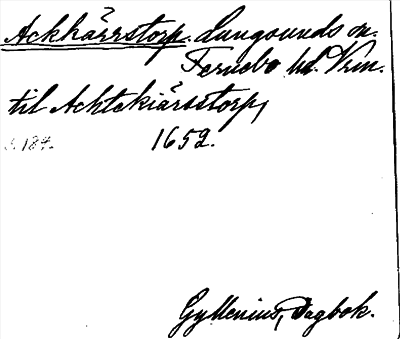 Ackkärrstorp. Lungsunds sn.
Fernebo hd. Vrm.
til Achtekiärsstorp,
s. 184. 1652.
Gyllenius, Dagbok.